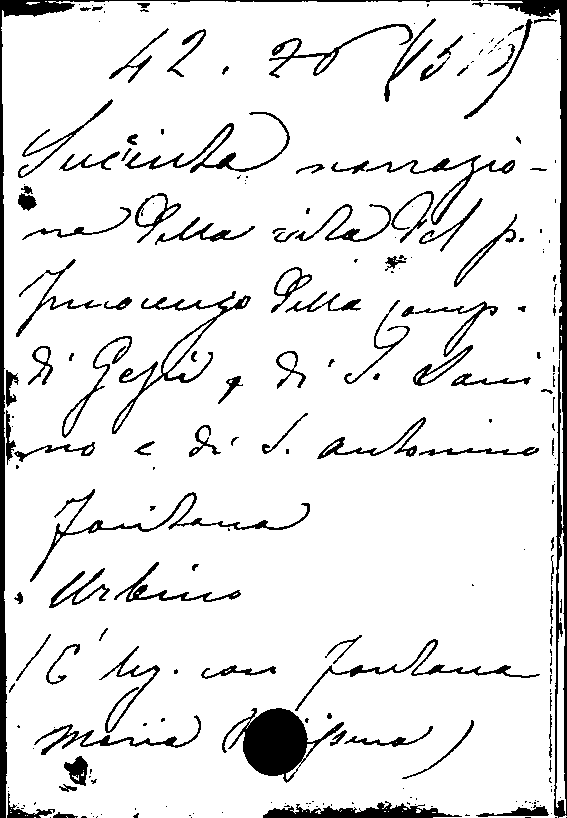 42. 20 (15
Sucinta narrazio-
ne della vita del p.
Innocenzo della comp.
di Gesù, di S. Dani-
no e di S. Antonino
Fontana
Urbino
(È leg. con Fontana
Maria